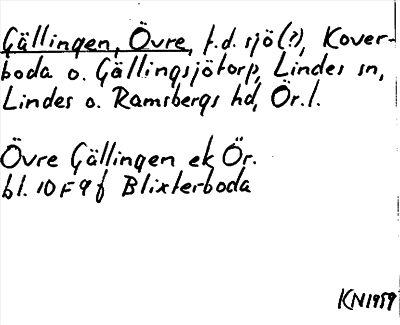 Gällingen, Övre, f.d. sjö(?), Kover-
boda o. Gällingsjötorp, Lindes sn,
Lindes o. Ramsbergs hd, Ör.l.
Övre Gällingen ek Ör.
bl. 10 F 9 f Blixterboda
KN1959